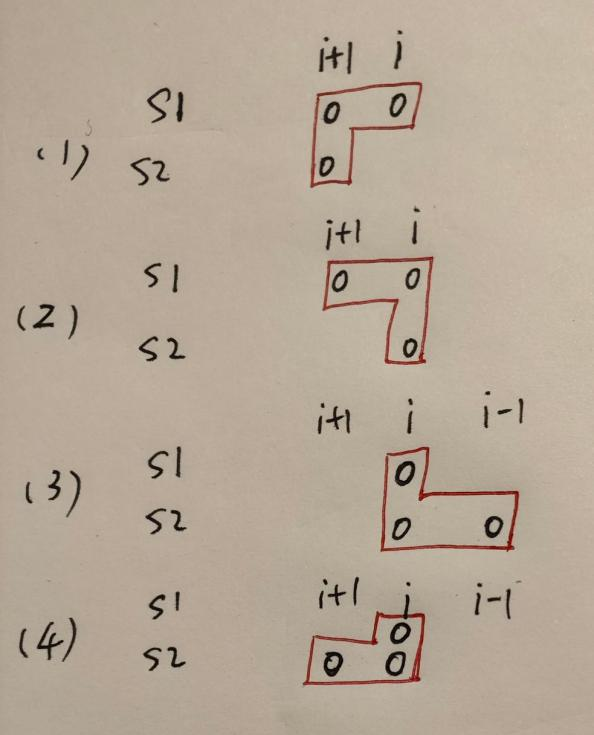 i+1 i
S1 0 0
(1) S2 0
i+1 i
S1 0 0
(2)
S2 0
i+1 i i-1
S1 0
(3)
S2 0 0
i+1 i i-1
S1 0
(4) S2 0 0